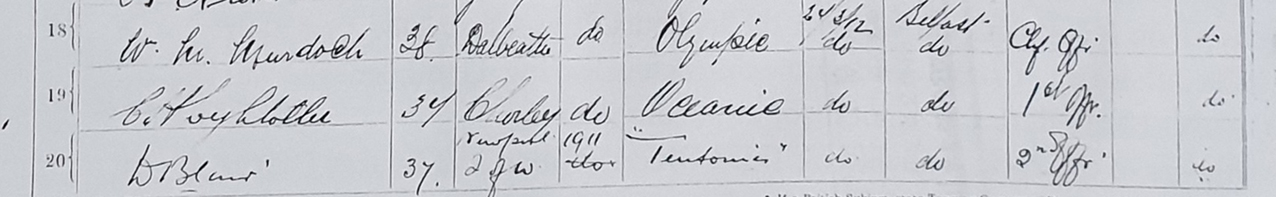 18 W. M. Murdoch 38. Dalbeattie do Olympic 24/3/12 do Belfast do Chf. Offr do
19 C H Lightoller 34 Chorley do Oceanic do do 1st Offr. do
20 D Blair 37. 1911 "Teutonic" do do 2nd Offr do